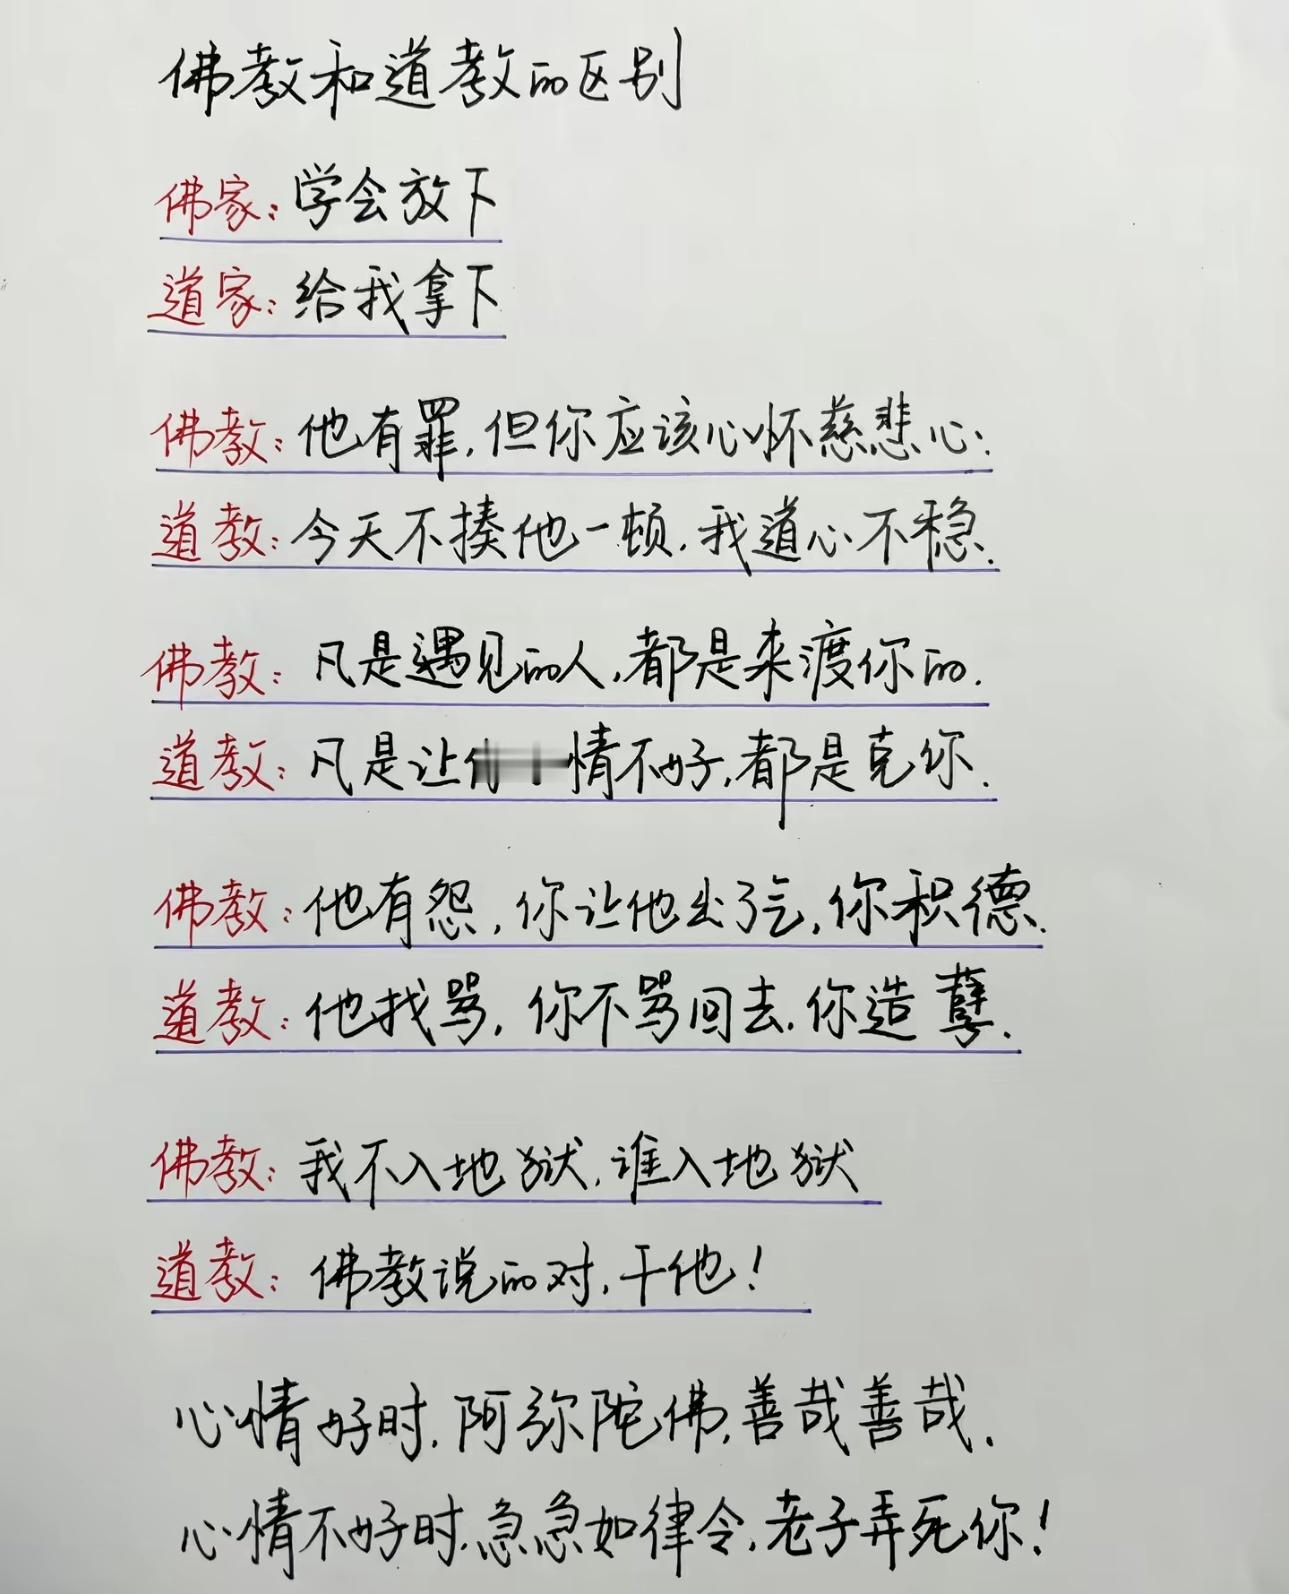 佛教和道教的区别
佛家:学会放下
道家:给我拿下
佛教:他有罪,但你应该心怀慈悲心.
道教:今天不揍他一顿,我道心不稳.
佛教:凡是遇见的人,都是来渡你的.
道教:凡是让 情不好,都是克你.
佛教:他有怨,你让他出了气,你积德.
道教:他找骂,你不骂回去,你造孽.
佛教:我不入地狱,谁入地狱
道教:佛教说的对,干他!
心情好时,阿弥陀佛,善哉善哉.
心情不好时,急急如律令,老子弄死你!